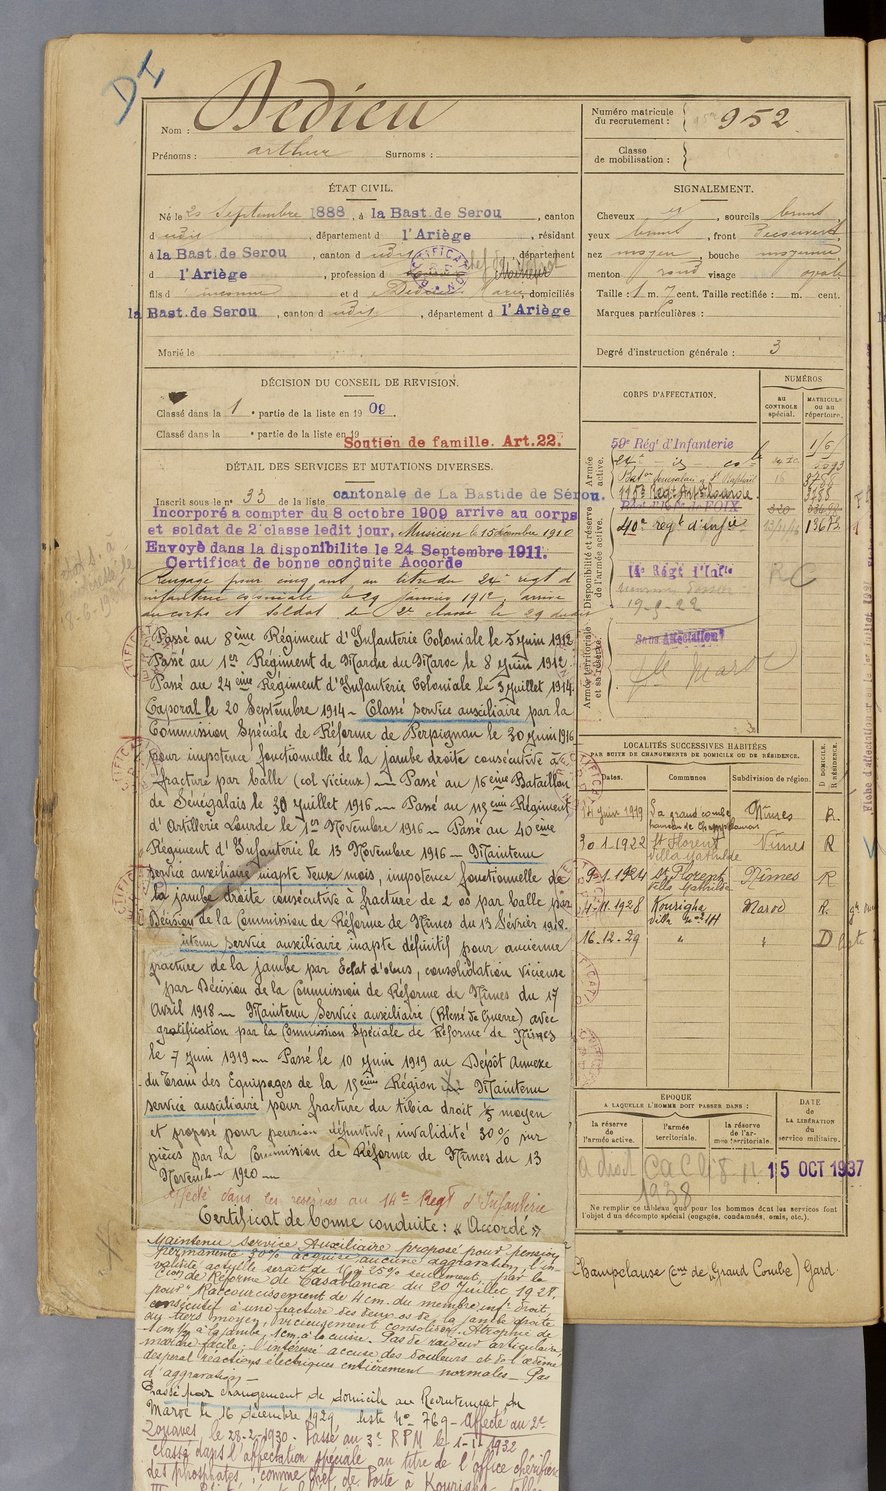 D I
Nom : Dedieu
Prénoms : arthur Surnoms :
ÉTAT CIVIL.
Né le 20 Septembre 1888, à la Bast. de Serou, canton
d udit, département d l'Ariège, résidant
à la Bast. de Serou, canton d udit, département
d l'Ariège, profession d
fils d inconnu et d Dedieu Marie, domiciliés
la Bast. de Serou, canton d udit, département d l'Ariège
Marié le
DÉCISION DU CONSEIL DE REVISION.
Classé dans la 1 e partie de la liste en 19 09
Classé dans la e partie de la liste en 19
Soutien de famille. Art. 22.
DÉTAIL DES SERVICES ET MUTATIONS DIVERSES.
Inscrit sous le n° 33 de la liste cantonale de La Bastide de Sérou.
Incorporé a compter du 8 octobre 1909 arrive au corps
et soldat de 2e classe ledit jour, Musicien le 15 décembre 1910
Envoyé dans la disponibilite le 24 Septembre 1911.
Certificat de bonne conduite Accorde
Rengagé pour cinq ans au titre du 24e regt d
infanterie coloniale le 29 janvier 1912, arrivé
au corps et soldat de 2e classe le 29 dudit
Passé au 8ème Régiment d'Infanterie Coloniale le 5 Juin 1912
Passé au 1er Régiment de Marche du Maroc le 8 Juin 1912
Passé au 24ème Régiment d'Infanterie Coloniale le 3 Juillet 1914
Caporal le 20 Septembre 1914 - Classé service auxiliaire par la
Commission Spéciale de Réforme de Perpignan le 30 Juin 1916
pour impotence fonctionnelle de la jambe droite consécutive à
fracture par balle (col vicieux) - Passé au 16ème Bataillon
de Sénégalais le 30 Juillet 1916 - Passé au 115ème Régiment
d'Artillerie Lourde le 1er Novembre 1916 - Passé au 40ème
Régiment d'Infanterie le 13 Novembre 1916 - Maintenu
service auxiliaire inapte deux mois, impotence fonctionnelle de
la jambe droite consécutive à fracture de 2 os par balle par
Décision de la Commission de Réforme de Nîmes du 13 Février 1918.
service auxiliaire inapte définitif pour ancienne
fracture de la jambe par Eclat d'obus, consolidation vicieuse
par Décision de la Commission de Réforme de Nîmes du 17
Avril 1918 - Maintenu Service auxiliaire (Blessé de Guerre) avec
gratification par la Commission Spéciale de Réforme de Nîmes
le 7 Juin 1919 - Passé le 10 Juin 1919 au Dépôt Annexe
du Train des Equipages de la 15ème Région Maintenu
service auxiliaire pour fracture du tibia droit 1/3 moyen
et proposé pour pension définitive, invalidité 30% sur
pièces par la Commission de Réforme de Nîmes du 13
Novembre 1920 -
Affecté dans les reserves au 14e Regt d'Infanterie
Certificat de bonne conduite : « Accordé »
Maintenu Service Auxiliaire proposé pour pension
permanente 30% acquise aucune aggravation, l'in
validité actuelle serait de 10 à 25% seulement, par la
Cion de Réforme de Casablanca du 20 Juillet 1928,
pour "Raccourcissement de 4 cm. du membre inf. droit
consécutif à une fracture des deux os de la jambe droite
au tiers moyen, vicieusement consolidée. Atrophie de
1cm 1/2 à la jambe, 1cm. à la cuisse. Pas de raideur articulaire,
marche facile ; l'intéressé accuse des douleurs et de l'œdème
vespéral réactions électriques entièrement normales - Pas
d'aggravation -
Passé par changement de domicile au Recrutement du
Maroc le 16 décembre 1929, liste N° 769 - Affecté au 2e
Zouaves, le 28-2-1930. Passé au 3e RPM le 1-11 1932
classé dans l'affectation spéciale au titre de l'office chérifien
des phosphates, comme chef de Poste à Kourigha
Numéro matricule
du recrutement : 952
Classe
de mobilisation :
SIGNALEMENT.
Cheveux et, sourcils bruns
yeux bruns, front Découvert,
nez moyen, bouche moyenne,
menton rond visage ovale
Taille : 1 m. 7 cent. Taille rectifiée : m. cent.
Marques particulières :
Degré d'instruction générale : 3
CORPS D'AFFECTATION.
NUMÉROS
AU CONTROLE SPÉCIAL.
MATRICULE OU AU RÉPERTOIRE.
Armée active.
Disponibilité et réserve de l'armée active.
Armée territoriale et sa réserve.
59e Régt d'Infanterie
115e Regt Artie Lourde
40e regt d'infie 13673
14e Régt d'Infie
19-9-22
R C
Sans Affectation
LOCALITÉS SUCCESSIVES HABITÉES
PAR SUITE DE CHANGEMENTS DE DOMICILE OU DE RÉSIDENCE.
Dates. Communes Subdivision de région. D DOMICILE. R RÉSIDENCE.
14 Juin 1919 La grand combe hameau de Champclauson Nîmes R.
30 1 1922 St Florent Villa Mathilde Nîmes R
9-1. 1924 St Florent Villa Mathilde Nîmes R
4-11. 1928 Kourigha Villa No 214 Maroc R.
16-12-29 " " D
ÉPOQUE
A LAQUELLE L'HOMME DOIT PASSER DANS :
la réserve de l'armée active.
l'armée territoriale.
la réserve de l'armée territoriale.
DATE de LA LIBÉRATION du service militaire.
a droit
1938
15 OCT 1937
Ne remplir ce tableau que pour les hommes dont les services font
l'objet d'un décompte spécial (engagés, condamnés, omis, etc.).
Champclause (Cne de Grand Combe) Gard.